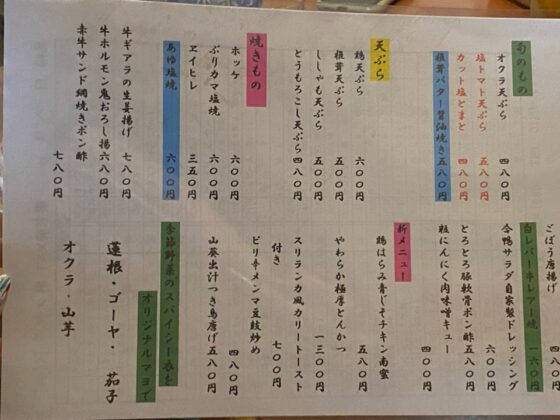 旬のもの
オクラ天ぷら 四八〇円
塩トマト天ぷら 五八〇円
カット塩とまと 四八〇円
椎茸バター醤油焼き 五八〇円
天ぷら
鶏天ぷら 六〇〇円
椎茸天ぷら 五〇〇円
ししゃも天ぷら 五〇〇円
とうもろこし天ぷら 四八〇円
焼きもの
ホッケ 六〇〇円
ぶりカマ塩焼 六〇〇円
ヱイヒレ 三五〇円
あゆ塩焼 六〇〇円
牛ギアラの生姜揚げ 七八〇円
牛ホルモン鬼おろし揚 六八〇円
赤牛サンド網焼きポン酢 七八〇円
ごぼう唐揚げ 四八〇円
白レバー串レアー焼 一六〇円
合鴨サラダ自家製ドレッシング 六〇〇円
とろとろ豚軟骨ポン酢 五八〇円
粒にんにく肉味噌キュー 四〇〇円
新メニュー
鶏はらみ青じそチキン南蜜 五八〇円
やわらか極厚とんかつ 一三〇〇円
スリランカ風カリートースト
付き 七〇〇円
ピリ辛メンマ豆鼓炒め 四八〇円
山葵出汁つき烏唐げ 五八〇円
季節野菜のスパイシー衣を
オリジナルマヨで
蓮根・ゴーヤ・茄子
オクラ・山芋